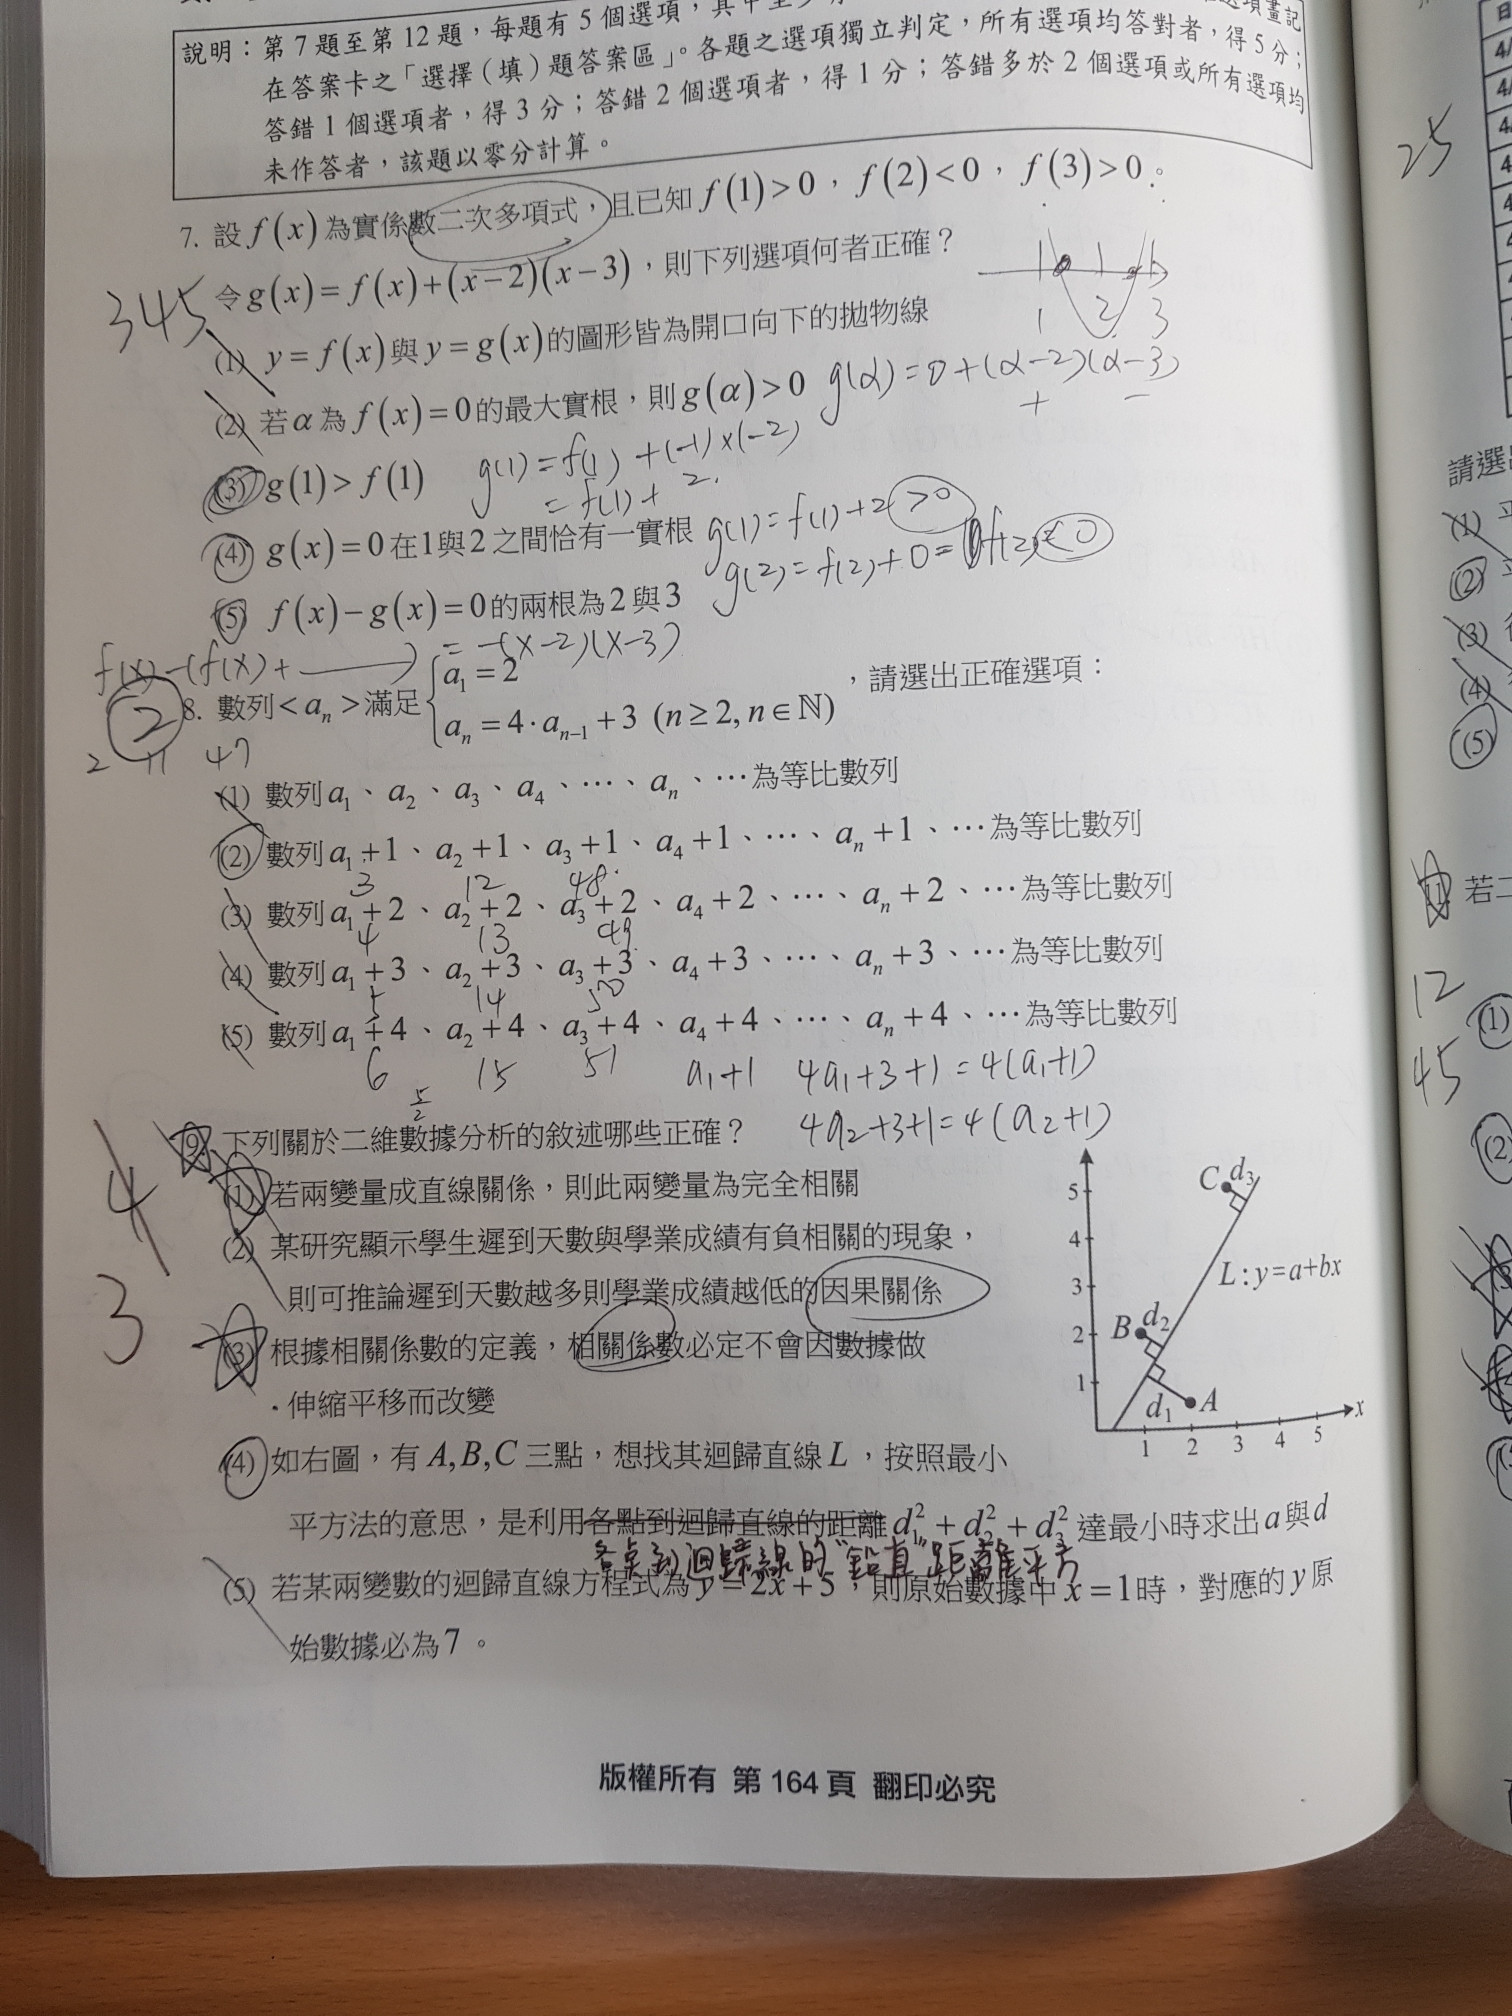 說明：第7題至第12題，每題有5個選項，其中至少
選項畫記
在答案卡之「選擇(填)題答案區」。各題之選項獨立判定，所有選項均答對者，得5分；
答錯1個選項者，得3分；答錯2個選項者，得1分；答錯多於2個選項或所有選項均
未作答者，該題以零分計算。
25
7. 設f(x)為實係數二次多項式，且已知f(1)>0，f(2)<0，f(3)>0。
令g(x)=f(x)+(x-2)(x-3)，則下列選項何者正確？
345
1 2 3
(1) y=f(x)與y=g(x)的圖形皆為開口向下的拋物線
(2) 若α為f(x)=0的最大實根，則g(α)>0
g(α)=0+(α-2)(α-3)
+ −
(3) g(1)>f(1)
g(1)=f(1)+(-1)×(-2)
=f(1)+2.
(4) g(x)=0在1與2之間恰有一實根
g(1)=f(1)+2>0
g(2)=f(2)+0=f(2)<0
(5) f(x)-g(x)=0的兩根為2與3
f(x)-(f(x)+ ) = -(x-2)(x-3)
2
8. 數列<aₙ>滿足{a₁=2
aₙ=4·aₙ₋₁+3 (n≥2,n∈ℕ)
，請選出正確選項：
2 11 47
(1) 數列a₁、a₂、a₃、a₄、⋯、aₙ、⋯為等比數列
(2) 數列a₁+1、a₂+1、a₃+1、a₄+1、⋯、aₙ+1、⋯為等比數列
3 12 48
(3) 數列a₁+2、a₂+2、a₃+2、a₄+2、⋯、aₙ+2、⋯為等比數列
4 13 49
(4) 數列a₁+3、a₂+3、a₃+3、a₄+3、⋯、aₙ+3、⋯為等比數列
5 14 50
(5) 數列a₁+4、a₂+4、a₃+4、a₄+4、⋯、aₙ+4、⋯為等比數列
6 15 51 a₁+1 4a₁+3+1=4(a₁+1)
5/2
4a₂+3+1=4(a₂+1)
9. 下列關於二維數據分析的敘述哪些正確？
4
3
(1) 若兩變量成直線關係，則此兩變量為完全相關
(2) 某研究顯示學生遲到天數與學業成績有負相關的現象，
則可推論遲到天數越多則學業成績越低的因果關係
(3) 根據相關係數的定義，相關係數必定不會因數據做
伸縮平移而改變
(4) 如右圖，有A,B,C三點，想找其迴歸直線L，按照最小
平方法的意思，是利用各點到迴歸直線的距離d₁²+d₂²+d₃²達最小時求出a與d
各點到迴歸線的"鉛直"距離平方
(5) 若某兩變數的迴歸直線方程式為y=2x+5，則原始數據中x=1時，對應的y原
始數據必為7。
C d₃
5
4
3
2
1
L:y=a+bx
B d₂
d₁ A
1 2 3 4 5 x
版權所有 第164頁 翻印必究
請選
(1)
(2)
(3)
(4)
(5)
11 若二
12
45
(1)
(2)